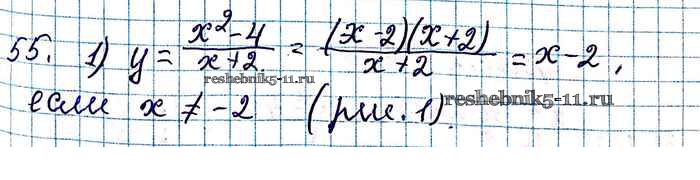 55. 1) y = (x² - 4)/(x + 2) = ((x - 2)(x + 2))/(x + 2) = x - 2,
reshebnik5-11.ru
если x ≠ -2 (рис. 1). reshebnik5-11.ru